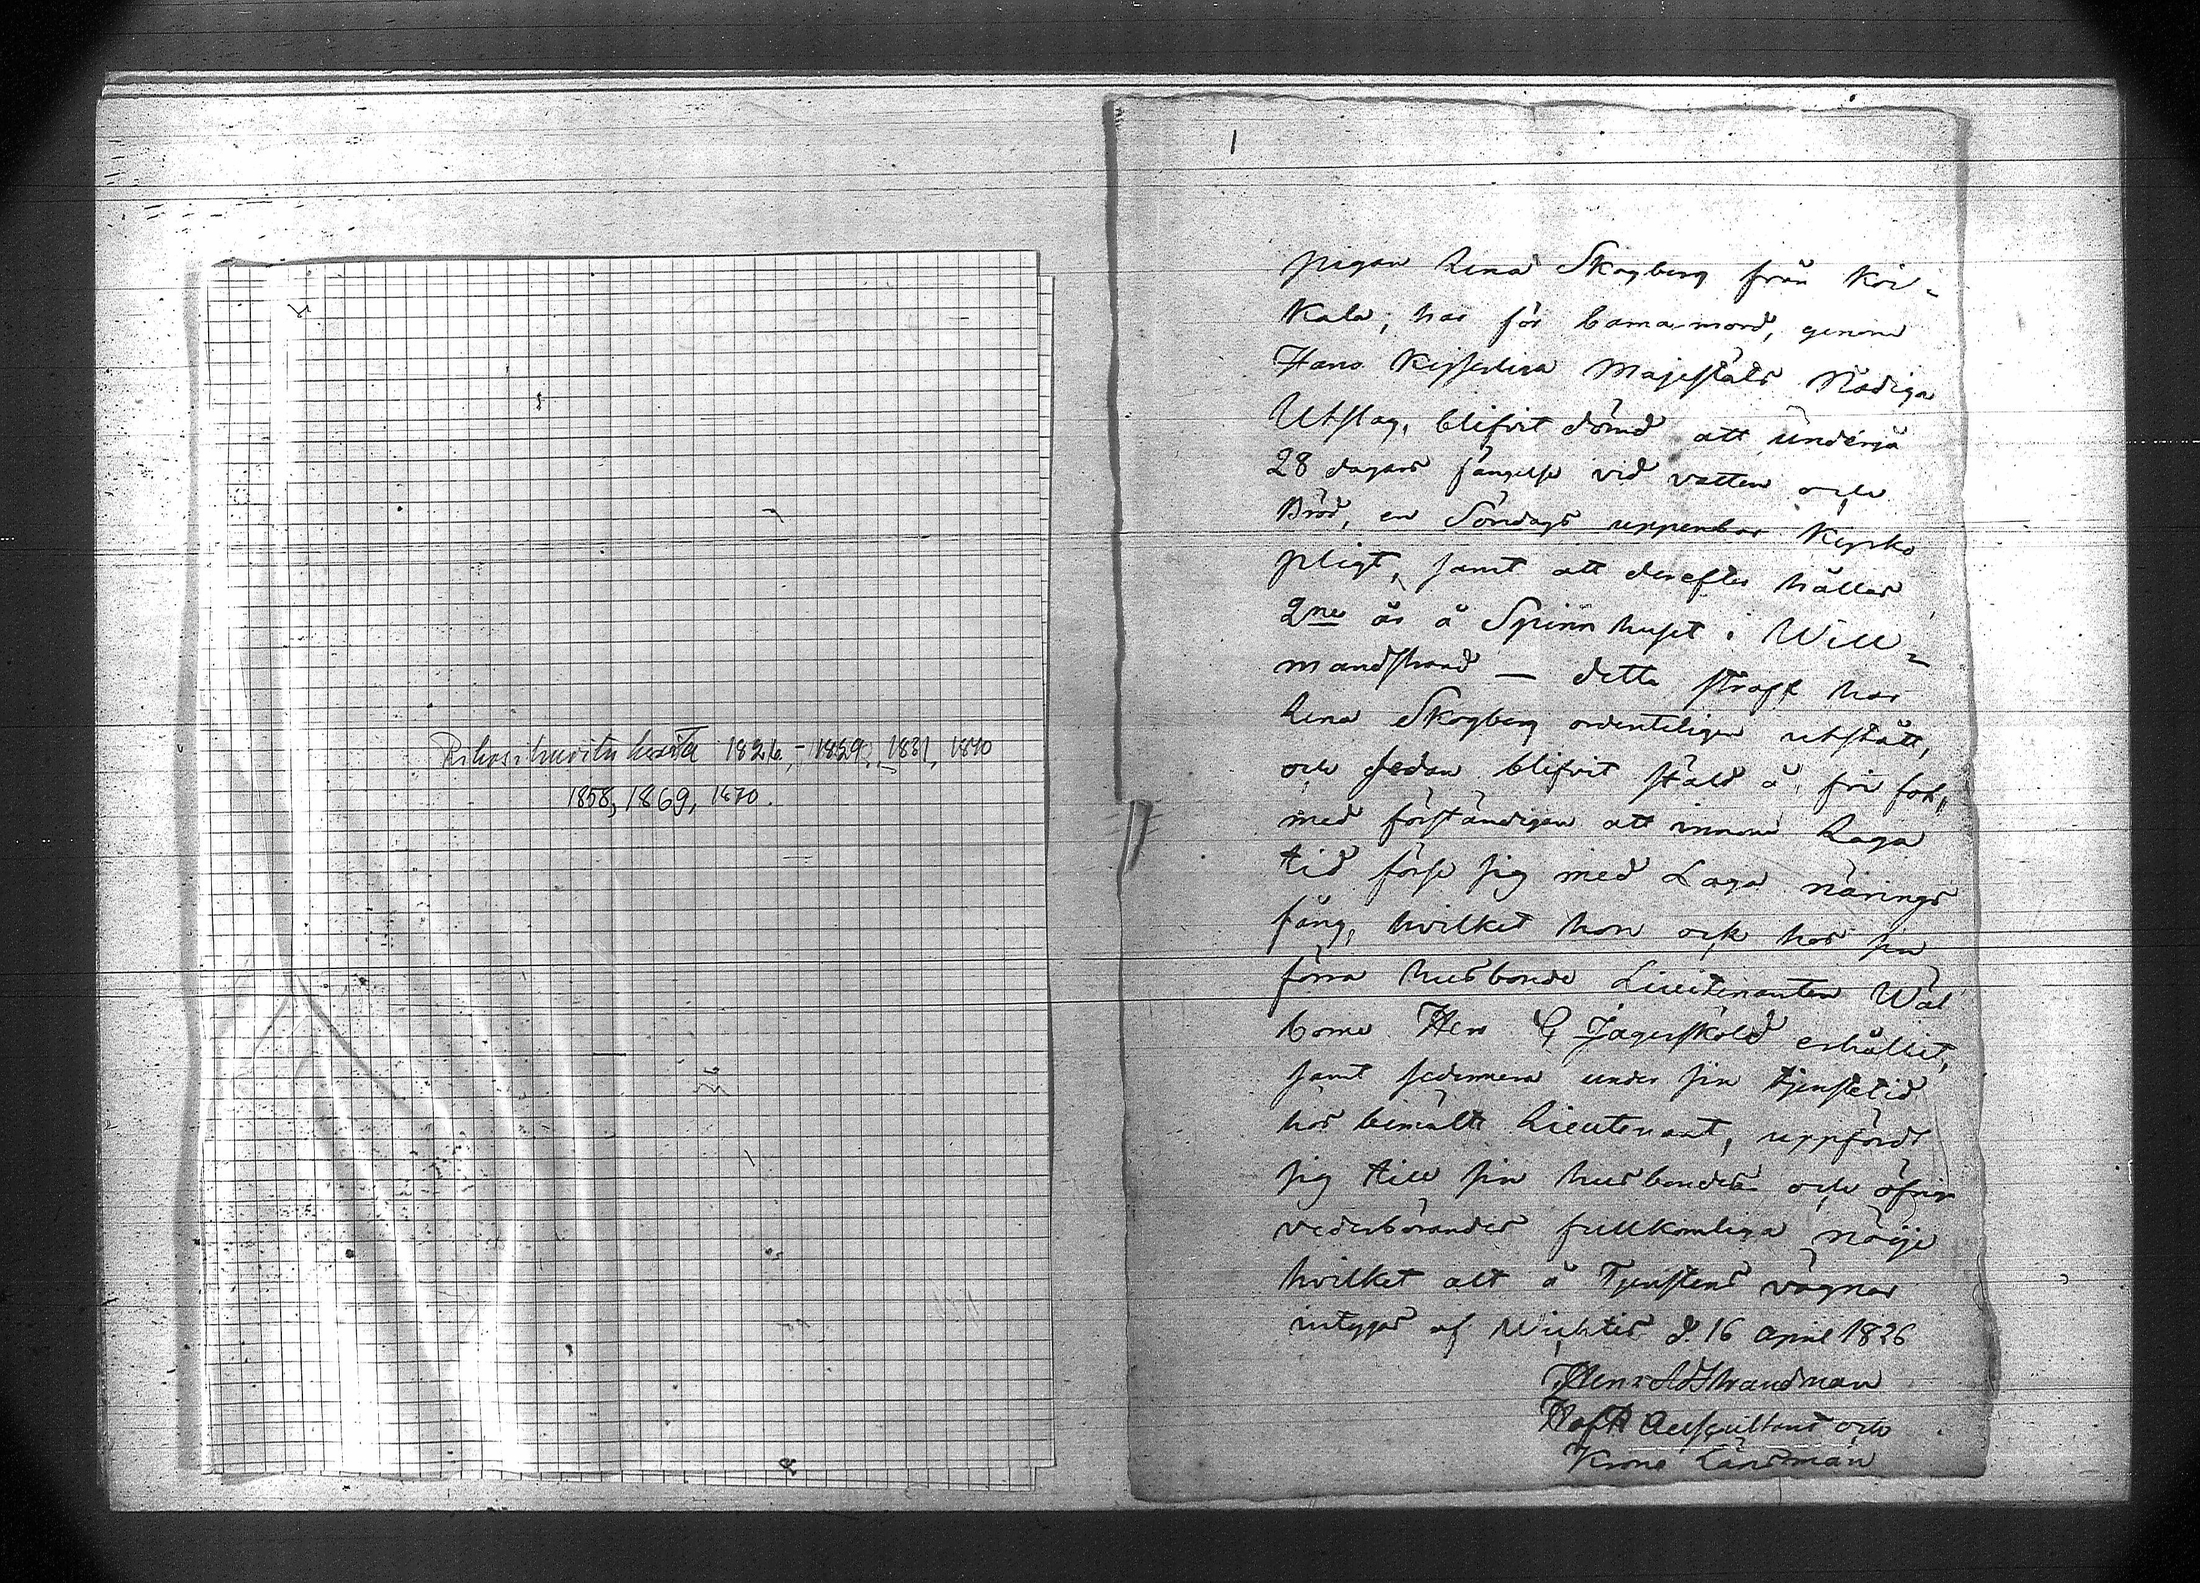 Rikosihuvituksesta 1826, - 1829, 1831, 1840
1858, 1869, 1870.
1
pigan Lena Skogberg från Koi-
kala, har för barna-mord, genom
Hans Kejserliga Majestäts Nådiga
Utslag, blifvit dömd att undergå
28 dagars fängelse vid vatten och
Bröd, en Söndags uppenbar Kyrko
pligt, samt att derefter hållas
2ne år å Spinnhuset i Will-
mandstrand — detta straff har
Lena Skogberg ordenteligen utstått,
och sedan blifvit stäld å fri fot,
med förständigan att innom Laga
tid förse sig med Laga närings
fång, hvilket hon ock hos sin
förra husbonde Lieutenanten Wäl
borne Herr G Jägerskold erhållit,
samt sedermera under sin tjenstetid
hos bemälte Lieutenant, uppfördt
sig till sin husbondes och öfrige
vederbörandes fullkomliga nöije
hvilket alt å Tjenstens vägnar
intygas af Wichtis d 16 April 1826
Henr Ad Strandman
Hof R Auscultant och
Krono Länsman